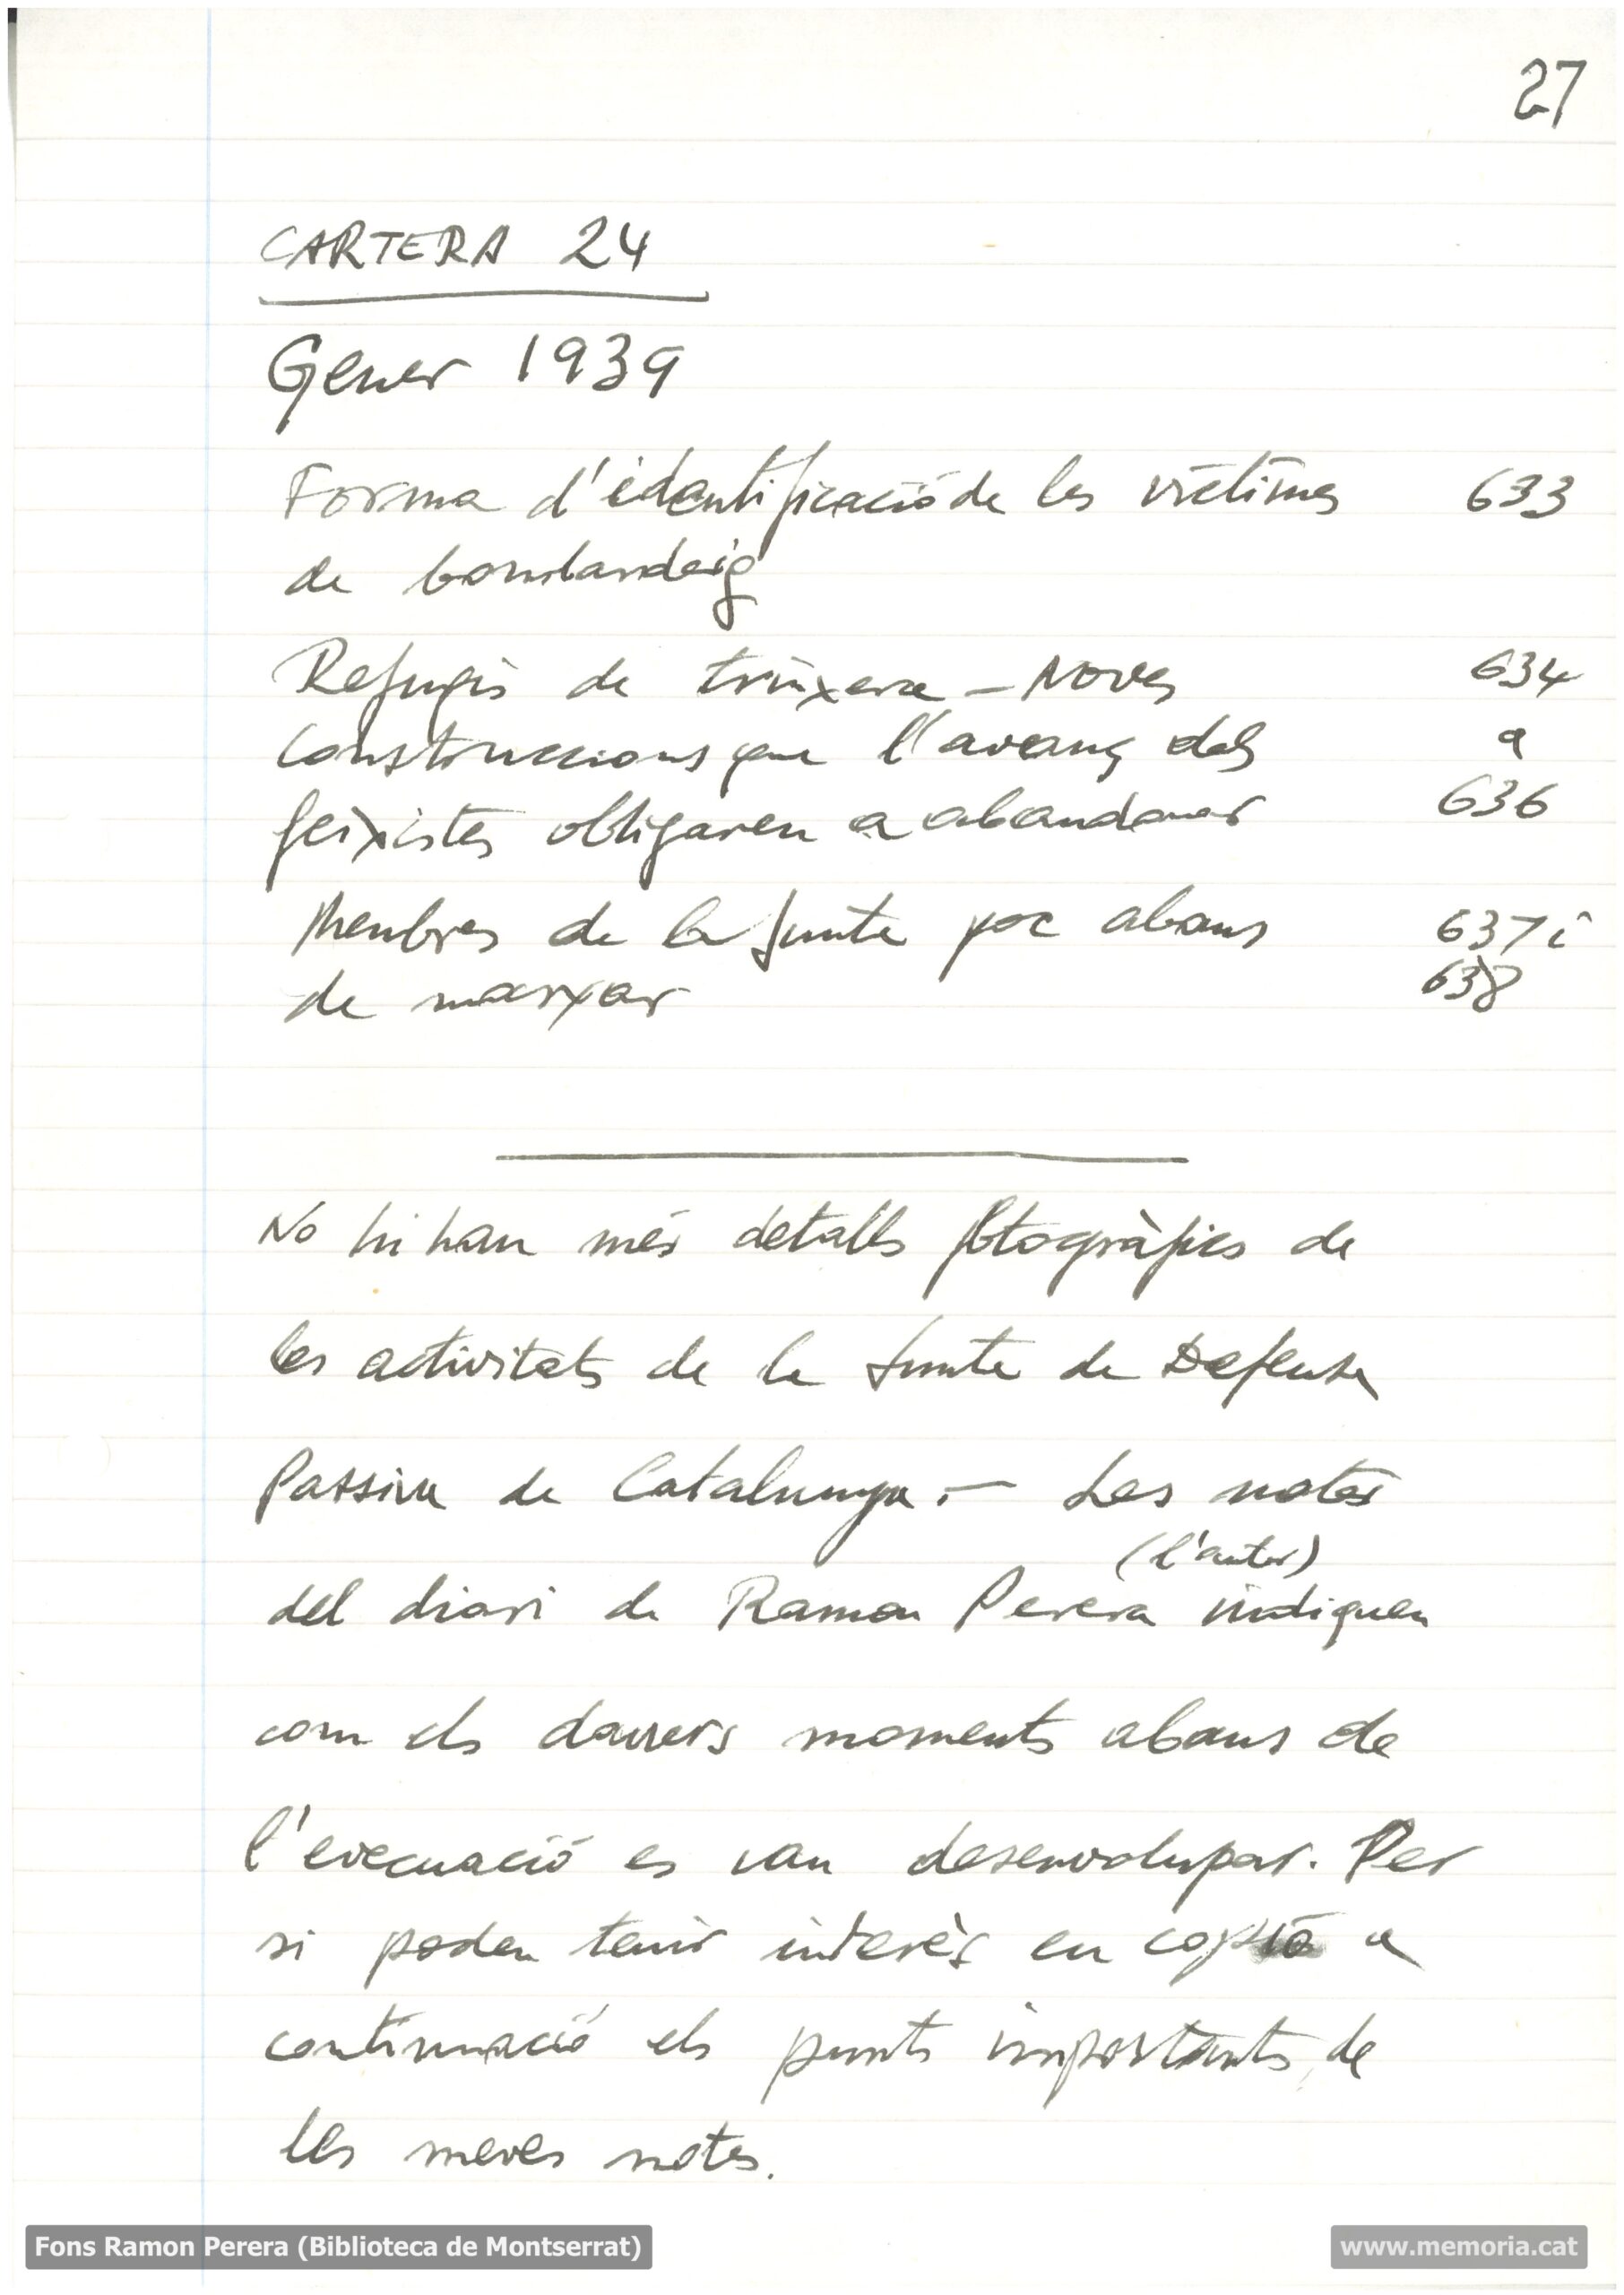 27
CARTERA 24
Gener 1939
Forma d'identificació de les víctimes 633
de bombardeig
Refugis de trinxera - Noves 634
construccions que l'avanç dels a
feixistes obligaren a abandonar 636
Membres de la Junta poc abans 637 i
de marxar 638
No hi han més detalls fotogràfics de
les activitats de la Junta de Defensa
Passiva de Catalunya.- Les notes
(l'autor)
del diari de Ramon Perera indiquen
com els darrers moments abans de
l'evecuació es van desenvolupar. Per
si poden tenir interès en copio a
continuació els punts importants, de
les meves notes.
Fons Ramon Perera (Biblioteca de Montserrat)
www.memoria.cat